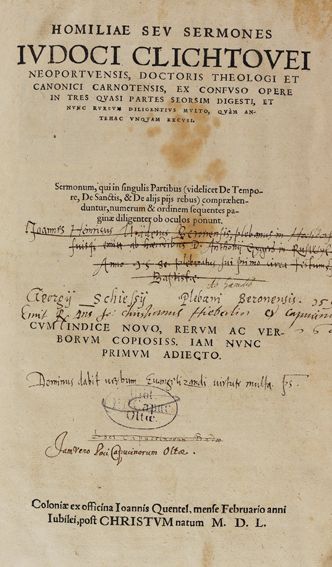 HOMILIAE SEV SERMONES
IVDOCI CLICHTOVEI
NEOPORTVENSIS, DOCTORIS THEOLOGI ET
CANONICI CARNOTENSIS, EX CONFVSO OPERE
IN TRES QVASI PARTES SEORSIM DIGESTI, ET
NVNC RVRSVM DILIGENTIVS MVLTO, QVÀM AN-
TEHAC VNQVAM EXCVSI.
Sermonum, qui in singulis Partibus (videlicet De Tempo-
re, De Sanctis, & De alijs pijs rebus) compræhen-
duntur, numerum & ordinem sequentes pa-
ginæ diligenter ob oculos ponunt.
Joannes Henricus Beronensis, plebanus in
fuissi emit ab haeredibus D. Anthonij
Anno
Baptistæ
Georgij Schiessij Plebani Beronensis.
Emit
CVM INDICE NOVO, RERVM AC VER-
BORVM COPIOSISS. IAM NVNC
PRIMVM ADIECTO.
Dominus dabit verbum Euangelizandi virtute multa. ps.
Bibl.
Capuc.
Oltæ.
Loci Capucinorum
Jam vero Loci Capucinorum Oltæ.
Coloniæ ex officina Ioannis Quentel, mense Februario anni
Iubilei, post CHRISTVM natum M. D. L.